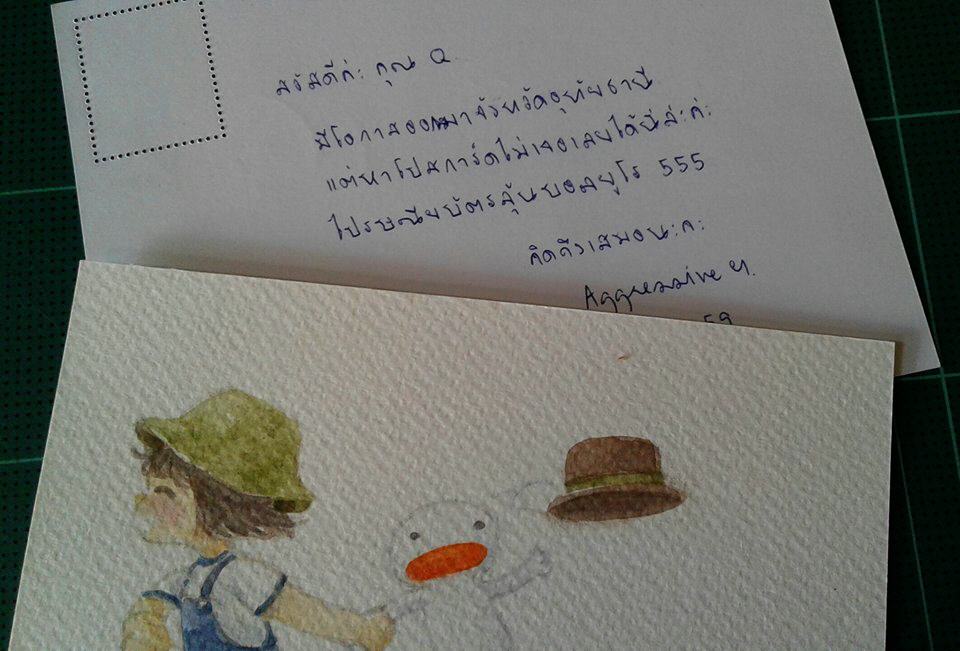 สวัสดีค่ะ คุณ Q
มีโอกาสออกมาจังหวัดอุทัยธานี
แต่หาโปสการ์ดไม่เจอเลยได้นี่ล่ะค่ะ
ไปรษณียบัตรลุ้นบอลยูโร 555
คิดถึงเสมอนะคะ
59